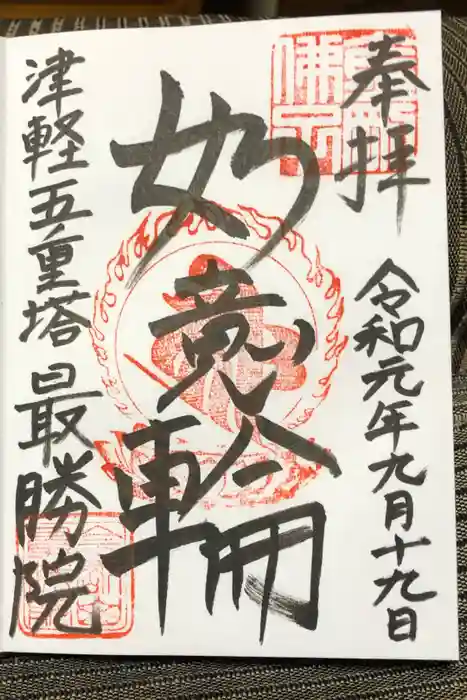 奉拝
令和元年九月十九日
如意輪
津軽五重塔 最勝院